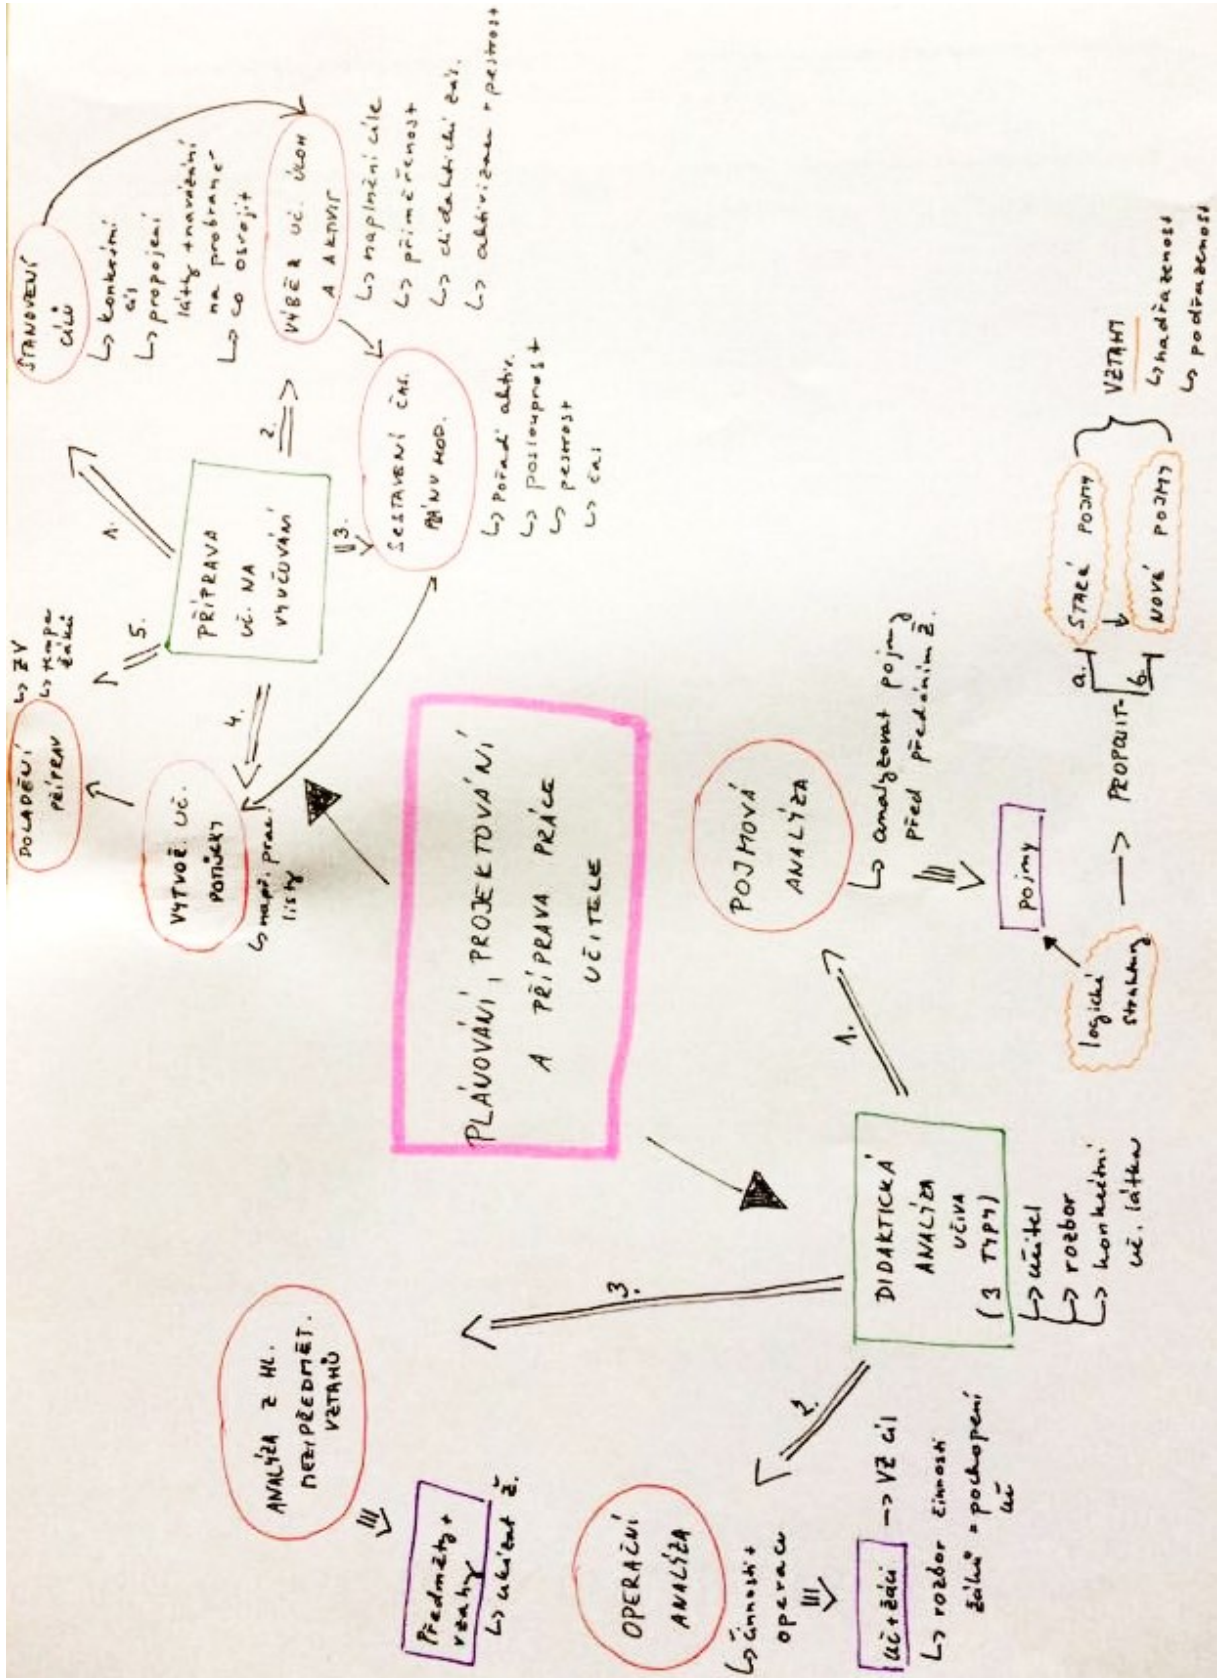 PLÁNOVÁNÍ, PROJEKTOVÁNÍ
A PŘÍPRAVA PRÁCE
UČITELE
PŘÍPRAVA
UČ. NA
VYUČOVÁNÍ
1.
STANOVENÍ
CÍLŮ
↳ konkrétní
cíl
↳ propojení
látky + navázání
na probrané
↳ co osvojit
2.
VÝBĚR UČ. ÚLOH
A AKTIVIT
↳ naplnění cíle
↳ přiměřenost
↳ didaktické zás.
↳ aktivizace + pestrost
3.
SESTAVENÍ ČAS.
PLÁNU HOD.
↳ pořadí aktiv.
↳ posloupnost
↳ pestrost
↳ čas
4.
VYTVOŘ. UČ.
POMŮCKY
↳ např. prac.
listy
5.
DOLADĚNÍ
PŘÍPRAV
↳ ZV
↳ tempo
žáků
DIDAKTICKÁ
ANALÝZA
UČIVA
(3 TYPY)
↳ učitel
↳ rozbor
↳ konkrétní
uč. látka
1.
POJMOVÁ
ANALÝZA
↳ analyzovat pojmy
před předáním ž.
pojmy
logické
struktury
→ PROPOJIT
a.
STARÉ POJMY
b.
NOVÉ POJMY
VZTAHY
↳ nadřazenost
↳ podřazenost
2.
OPERAČNÍ
ANALÝZA
↳ činnosti +
operace
uč + žáci → VZ cíl
↳ rozbor činnosti
žáků = pochopení
uč
3.
ANALÝZA Z HL.
MEZIPŘEDMĚT.
VZTAHŮ
Předměty +
vztahy
↳ ukázat ž.